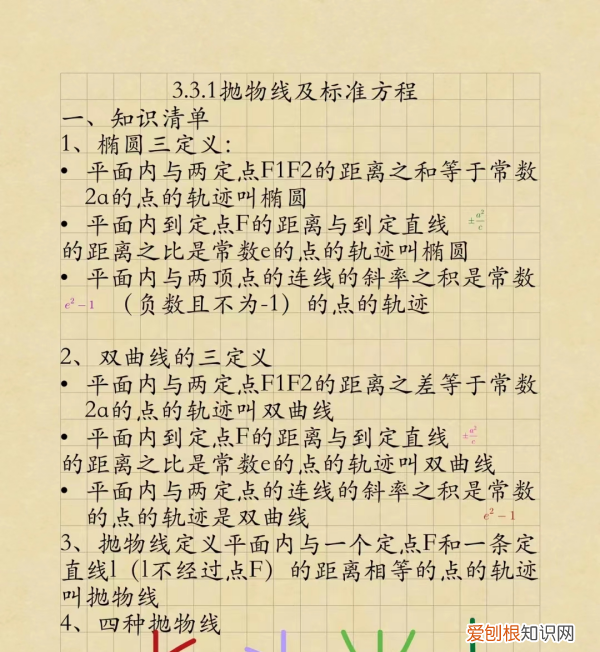 3.3.1抛物线及标准方程
一、知识清单
1、椭圆三定义:
• 平面内与两定点F1F2的距离之和等于常数
2a的点的轨迹叫椭圆
• 平面内到定点F的距离与到定直线 ±a²/c
的距离之比是常数e的点的轨迹叫椭圆
• 平面内与两顶点的连线的斜率之积是常数
e²−1 （负数且不为-1）的点的轨迹
2、双曲线的三定义
• 平面内与两定点F1F2的距离之差等于常数
2a的点的轨迹叫双曲线
• 平面内到定点F的距离与到定直线 ±a²/c
的距离之比是常数e的点的轨迹叫双曲线
• 平面内与两定点的连线的斜率之积是常数
的点的轨迹是双曲线 e²−1
3、抛物线定义平面内与一个定点F和一条定
直线l（l不经过点F）的距离相等的点的轨迹
叫抛物线
4、四种抛物线
爱刨根知识网